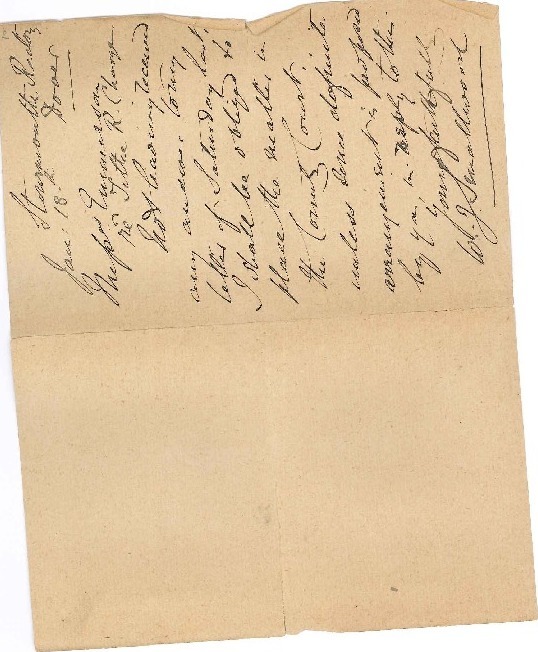 Starmouth Rectory
Dover
Jan: 18.
Messrs
re Tithe R. Charge
Not having received
any answer to my
letter of Saturday last
I shall be obliged to
place the matter in
the County Court:
unless some definite
arrangement is proposed
by you in reply to this
Yours faithfully
Wm J